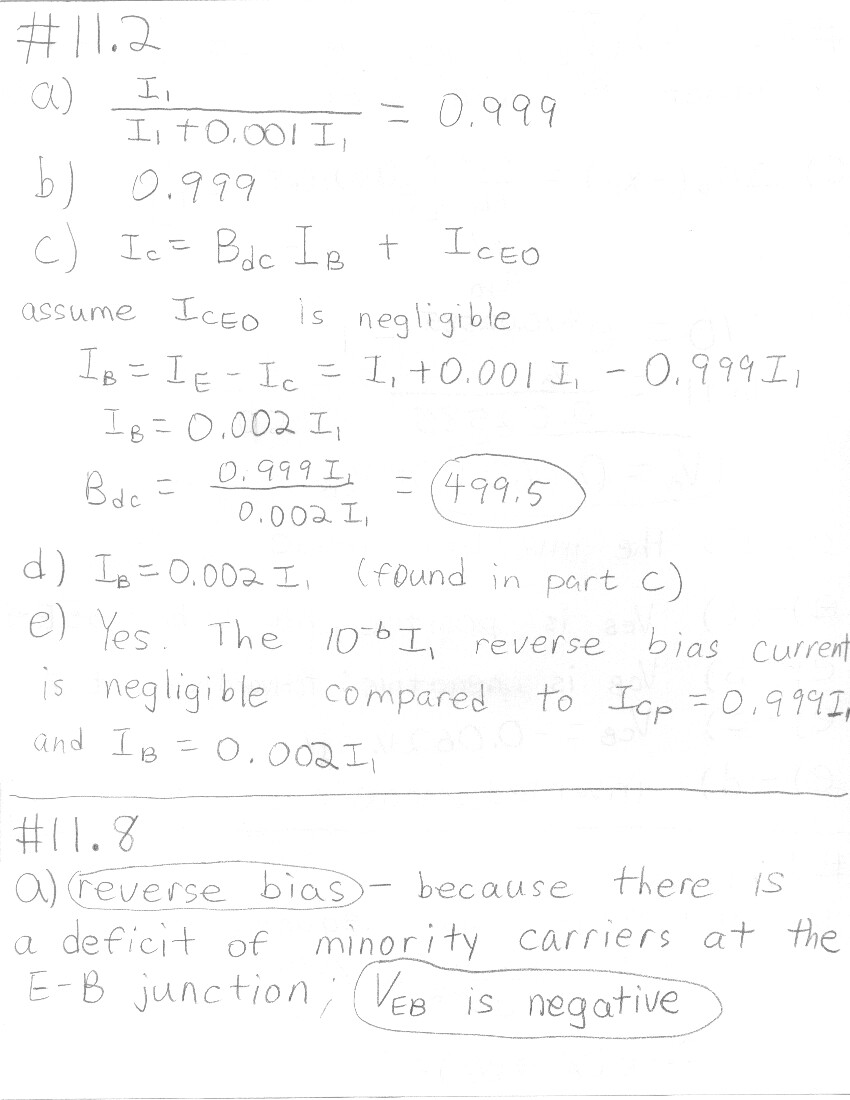 #11.2
a) I₁ / (I₁ + 0.001 I₁) = 0.999
b) 0.999
c) Ic = Bdc IB + ICEO
assume ICEO is negligible
IB = IE - Ic = I₁ + 0.001 I₁ - 0.999 I₁
IB = 0.002 I₁
Bdc = 0.999 I₁ / 0.002 I₁ = 499.5
d) IB = 0.002 I₁ (found in part c)
e) Yes. The 10⁻⁶ I₁ reverse bias current
is negligible compared to ICp = 0.999 I₁
and IB = 0.002 I₁
#11.8
a) reverse bias - because there is
a deficit of minority carriers at the
E-B junction; VEB is negative